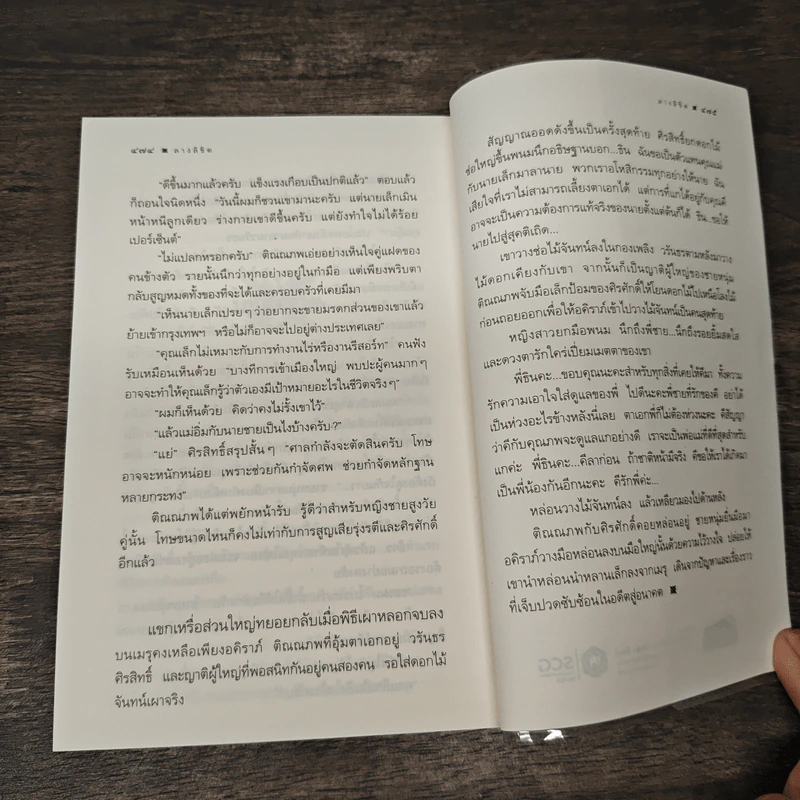 ๔๗๔ ลางลิขิต
"ดีขึ้นมากแล้วครับ แข็งแรงเกือบเป็นปกติแล้ว" ตอบแล้ว
ก็ถอนใจนิดหนึ่ง "วันนี้ผมก็ชวนเขามานะครับ แต่นายเล็กเมิน
หน้าหนีลูกเดียว ร่างกายเขาดีขึ้นครับ แต่ยังทำใจไม่ได้ร้อย
เปอร์เซ็นต์"
"ไม่แปลกหรอกครับ" ติณณภพเอ่ยอย่างเห็นใจคู่แฝดของ
คนข้างตัว รายนั้นนึกว่าทุกอย่างอยู่ในกำมือ แต่เพียงพริบตา
กลับสูญหมดทั้งของที่จะได้และครอบครัวที่เคยมีมา
"เห็นนายเล็กเปรยๆ ว่าอยากจะขายมรดกส่วนของเขาแล้ว
ย้ายเข้ากรุงเทพฯ หรือไม่ก็อาจจะไปอยู่ต่างประเทศเลย"
"คุณเล็กไม่เหมาะกับการทำงานไร่หรืองานรีสอร์ท" คนฟัง
รับเหมือนเห็นด้วย "บางทีการเข้าเมืองใหญ่ พบปะผู้คนมากๆ
อาจจะทำให้คุณเล็กรู้ว่าตัวเองมีเป้าหมายอะไรในชีวิตจริงๆ"
"ผมก็เห็นด้วย คิดว่าคงไม่รั้งเขาไว้"
"แล้วแม่อิ่มกับนายชายเป็นไงบ้างครับ?"
"แย่" ศิรสิทธิ์สรุปสั้นๆ "ศาลกำลังจะตัดสินครับ โทษ
อาจจะหนักหน่อย เพราะช่วยกันกำจัดศพ ช่วยกำจัดหลักฐาน
หลายกระทง"
ติณณภพได้แต่พยักหน้ารับ รู้ดีว่าสำหรับหญิงชายสูงวัย
คู่นั้น โทษขนาดไหนก็คงไม่เท่ากับการสูญเสียรุ่งรตีและศิรศักดิ์
อีกแล้ว
แขกเหรื่อส่วนใหญ่ทยอยกลับเมื่อพิธีเผาหลอกจบลง
บนเมรุคงเหลือเพียงอคิราภ์ ติณณภพที่อุ้มตาเอกอยู่ วรันธร
ศิรสิทธิ์ และญาติผู้ใหญ่ที่พอสนิทกันอยู่คนสองคน รอใส่ดอกไม้
จันทน์เผาจริง
ลางลิขิต ๔๗๕
สัญญาณออดดังขึ้นเป็นครั้งสุดท้าย ศิรสิทธิ์ยกดอกไม้
ช่อใหญ่ขึ้นพนมนึกอธิษฐานบอก...ธิน ฉันขอเป็นตัวแทนคุณแม่
กับนายเล็กมาลานาย พวกเราอโหสิกรรมทุกอย่างให้นาย ฉัน
เสียใจที่เราไม่สามารถเลี้ยงตาเอกได้ แต่การที่แกได้อยู่กับคุณดี
อาจจะเป็นความต้องการแท้จริงของนายตั้งแต่ต้นก็ได้ ธิน...ขอให้
นายไปสู่สุคติเถิด...
เขาวางช่อไม้จันทน์ลงในกองเพลิง วรันธรตามหลังมาวาง
ไม้ดอกเคียงกับเขา จากนั้นก็เป็นญาติผู้ใหญ่ของชายหนุ่ม
ติณณภพจับมือเล็กป้อมของศิรศักดิ์ให้โยนดอกไม้ไปเหนือโลงไม้
ก่อนถอยออกเพื่อให้อคิราภ์เข้าไปวางไม้จันทน์เป็นคนสุดท้าย
หญิงสาวยกมือพนม นึกถึงพี่ชาย...นึกถึงรอยยิ้มสดใส
และดวงตารักใคร่เปี่ยมเมตตาของเขา
พี่ธินคะ...ขอบคุณนะคะสำหรับทุกสิ่งที่เคยให้คีมา ทั้งความ
รักความเอาใจใส่ดูแลของพี่ ไปดีนะคะพี่ชายที่รักของคี อย่าได้
เป็นห่วงอะไรข้างหลังนี่เลย ตาเอกพี่ก็ไม่ต้องห่วงนะคะ คีสัญญา
ว่าคีกับคุณภพจะดูแลแกอย่างดี เราจะเป็นพ่อแม่ที่ดีที่สุดสำหรับ
แกค่ะ พี่ธินคะ...คีลาก่อน ถ้าชาติหน้ามีจริง คีขอให้เราได้เกิดมา
เป็นพี่น้องกันอีกนะคะ คีรักพี่ค่ะ...
หล่อนวางไม้จันทน์ลง แล้วเหลียวมองไปด้านหลัง
ติณณภพกับศิรศักดิ์คอยหล่อนอยู่ ชายหนุ่มยื่นมือมา
อคิราภ์วางมือหล่อนลงบนมือใหญ่นั้นด้วยความไว้วางใจ ปล่อยให้
เขานำหล่อนนำหลานเล็กลงจากเมรุ เดินจากปัญหาและเรื่องราว
ที่เจ็บปวดซับซ้อนในอดีตสู่อนาคต